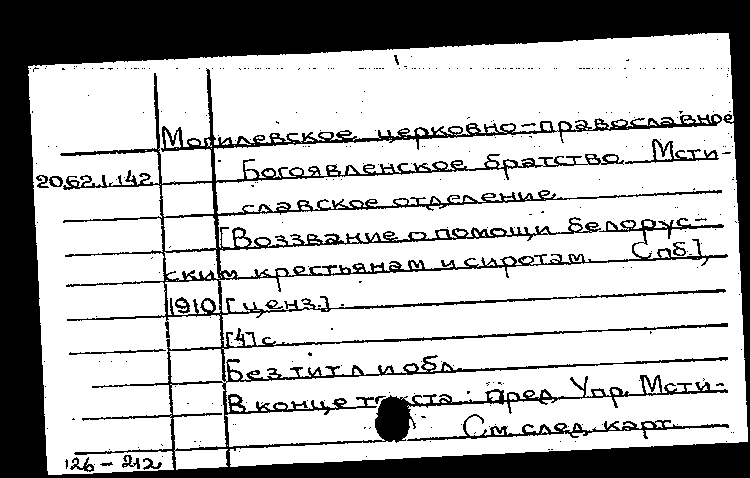 Могилевское церковно-православное
20.62.1.142 Богоявленское братство. Мсти-
славское отделение.
[Воззвание о помощи белорус-
ским крестьянам и сиротам. Спб.],
1910 [ценз.].
[4] с.
Без тит. л и обл.
В конце текста: пред. Упр. Мсти-
См. след. карт.
126-212